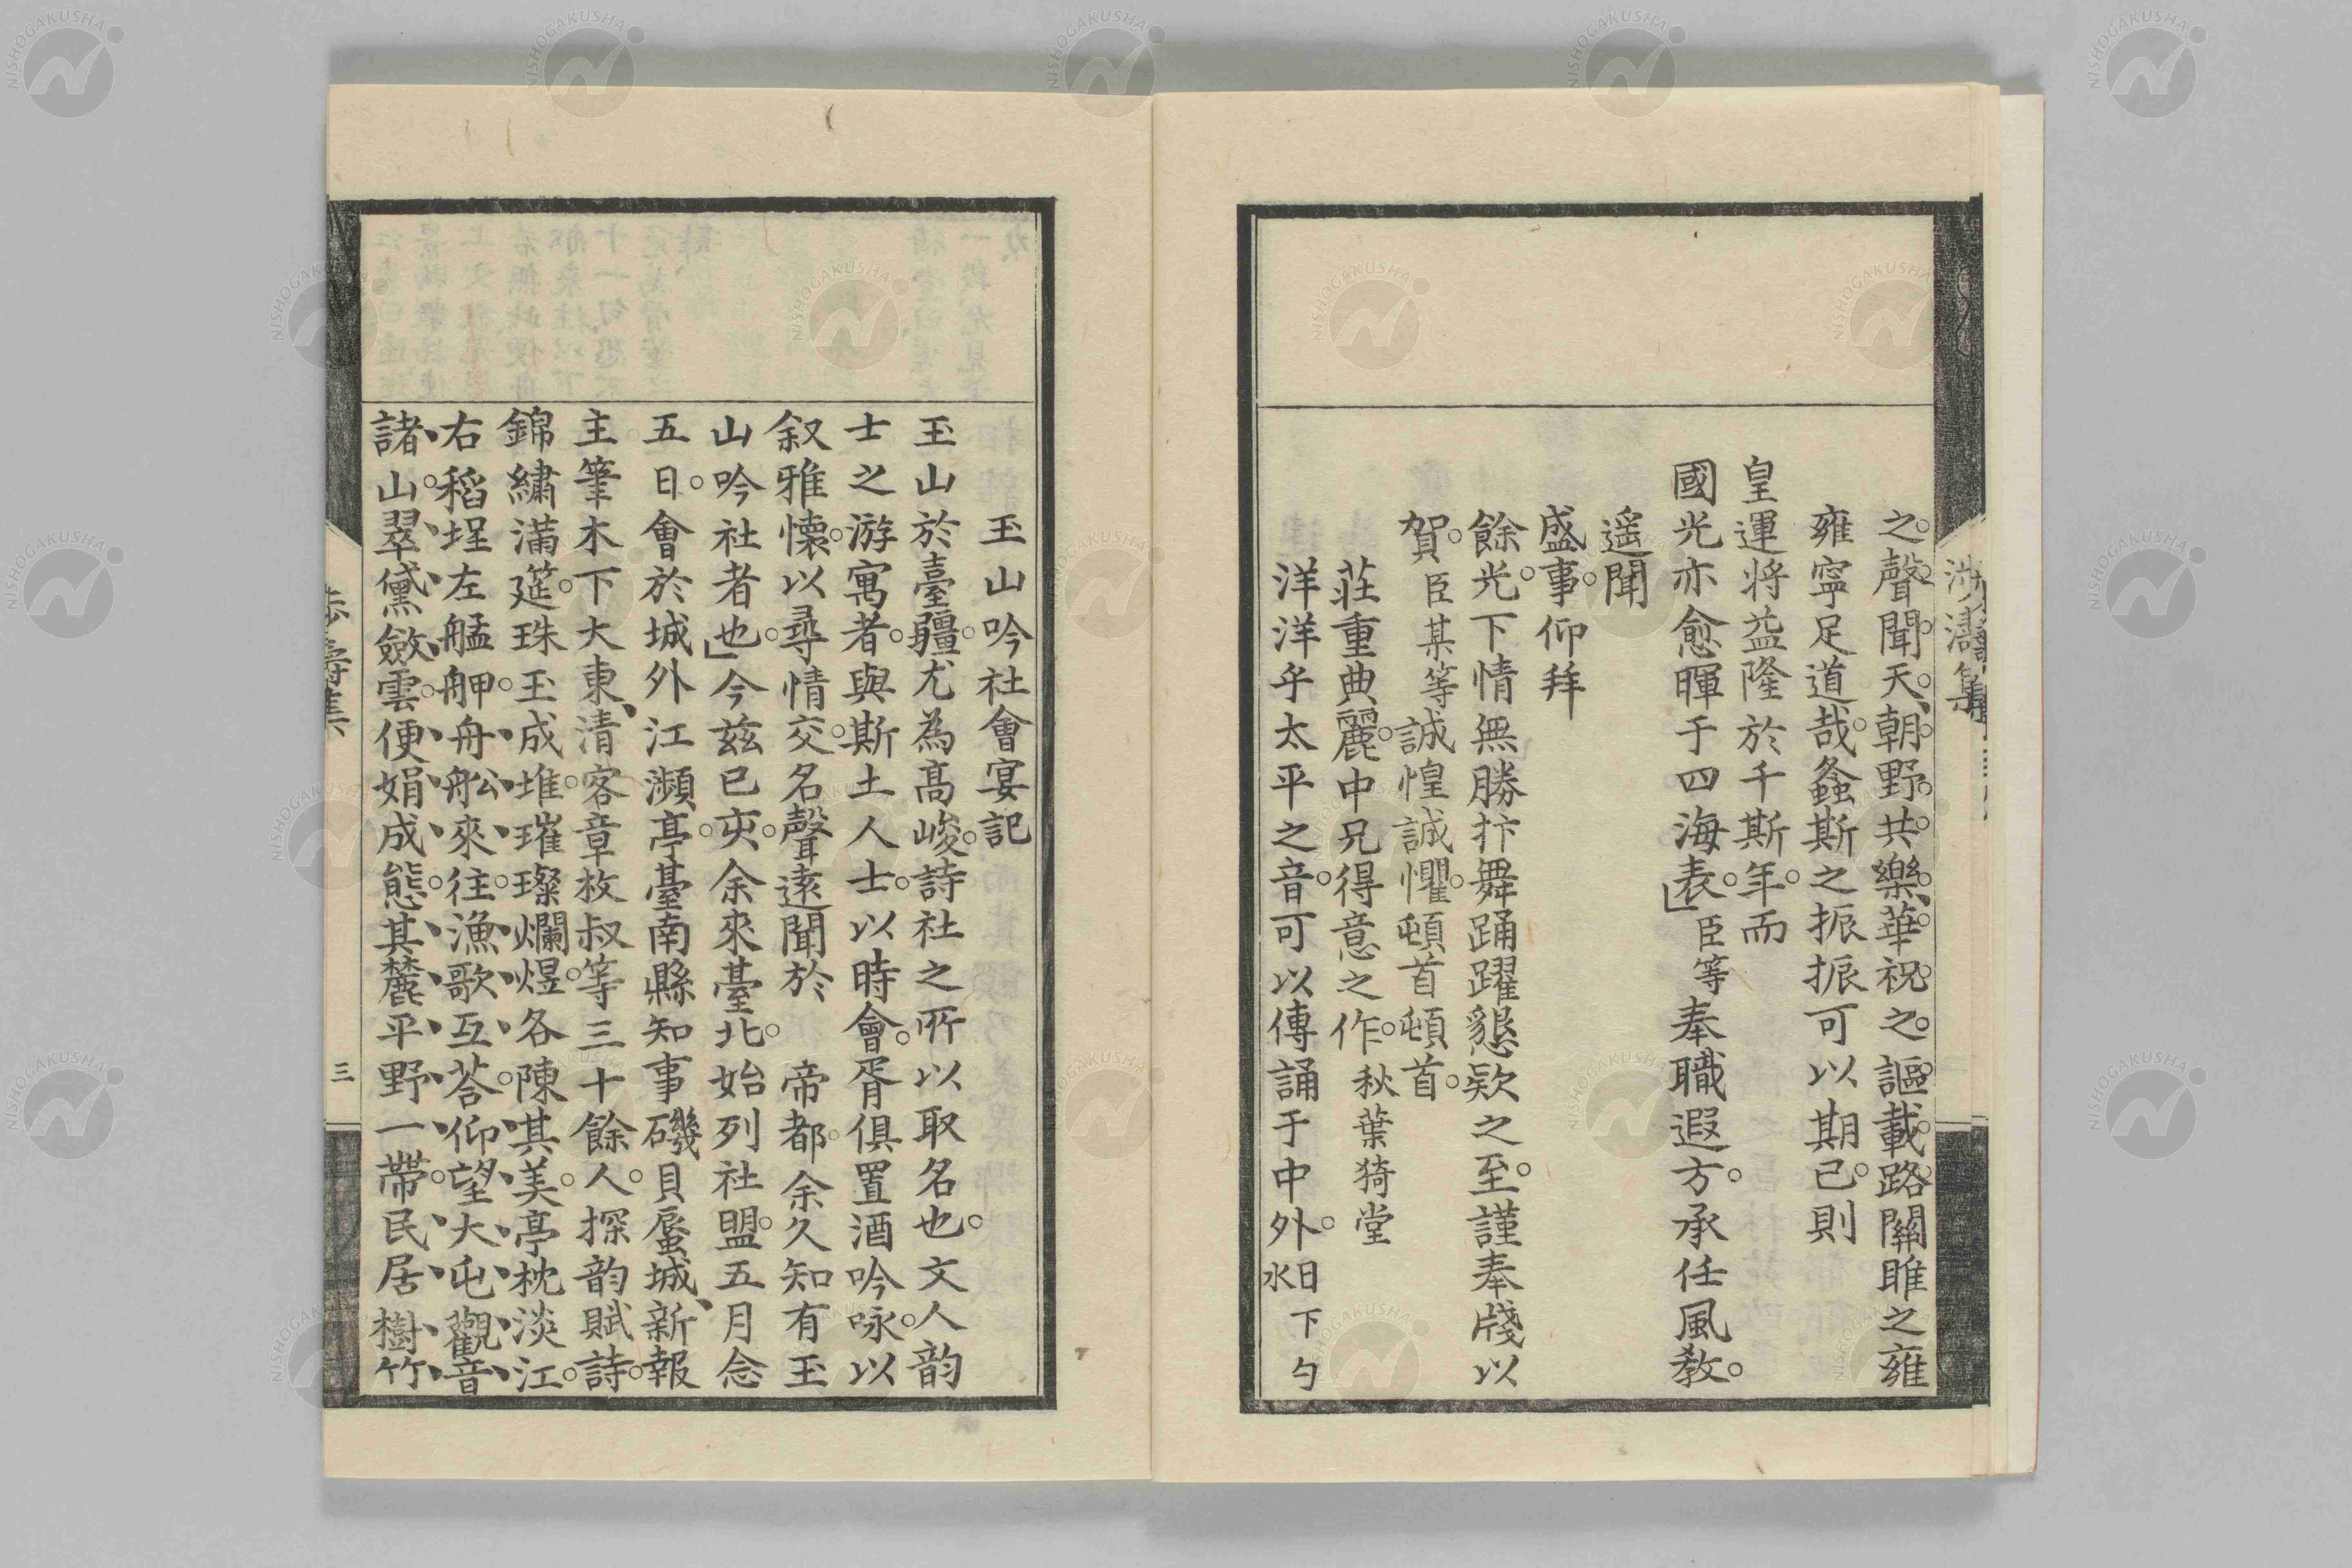 之。聲聞天、朝野共樂、華祝之。謳載路。關雎之雍
雍寧足道哉。螽斯之振振可以期已。則
皇運将益隆於千斯年。而
國光亦愈暉于四海表。」臣等奉職遐方。承任風教。
遥聞
盛事。仰拜
餘光。下情無勝抃舞踊躍懇欵之至。謹奉牋以
賀。臣某等誠惶誠懼。頓首頓首。
莊重典麗。中兄得意之作。秋葉猗堂
洋洋乎太平之音。可以傳誦于中外。日下勺水
玉山吟社會宴記
玉山於臺疆。尤為髙峻。詩社之所以取名也。文人韵
士之游寓者。與斯土人士。以時會。胥俱置酒吟咏。以
叙雅懐。以尋情交。名聲遠聞於 帝都。余久知有玉
山吟社者也。」今茲已亥。余來臺北。始列社盟。五月念
五日。會於城外江瀕亭。臺南縣知事磯貝蜃城、新報
主筆木下大東、清客章枚叔等三十餘人。探韵賦詩。
錦繡滿筵。珠玉成堆。璀璨爛煜。各陳其美。亭枕淡江。
右稻埕左艋舺。舟舩來往。漁歌互荅。仰望大屯觀音
諸山。翠黛斂雲。便娟成態。其麓平野一帶。民居樹竹
涉濤集
三